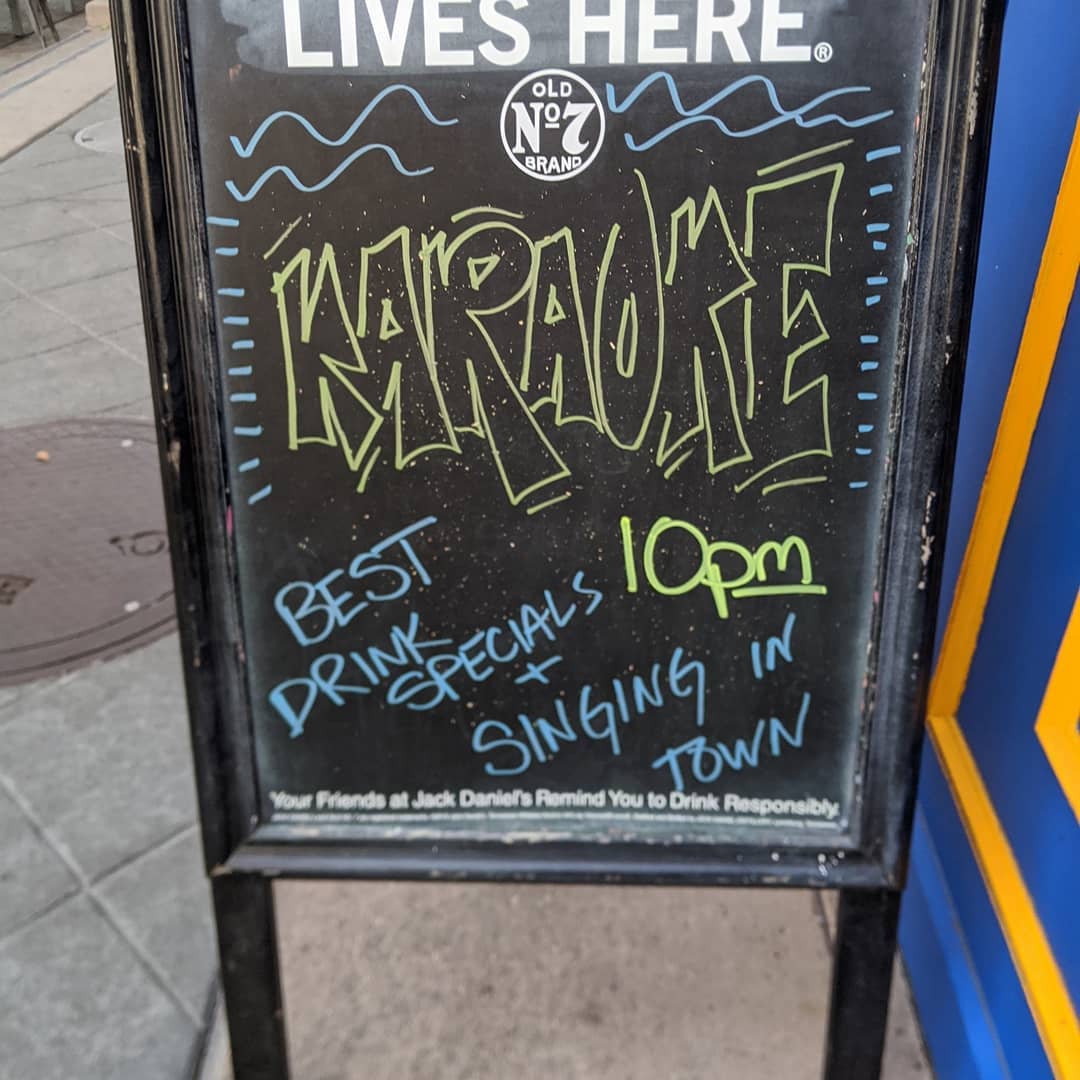 LIVES HERE.®
OLD
Nº7
BRAND
KARAOKE
10pm
BEST
DRINK
SPECIALS
+
SINGING IN
TOWN
Your Friends at Jack Daniel's Remind You to Drink Responsibly.